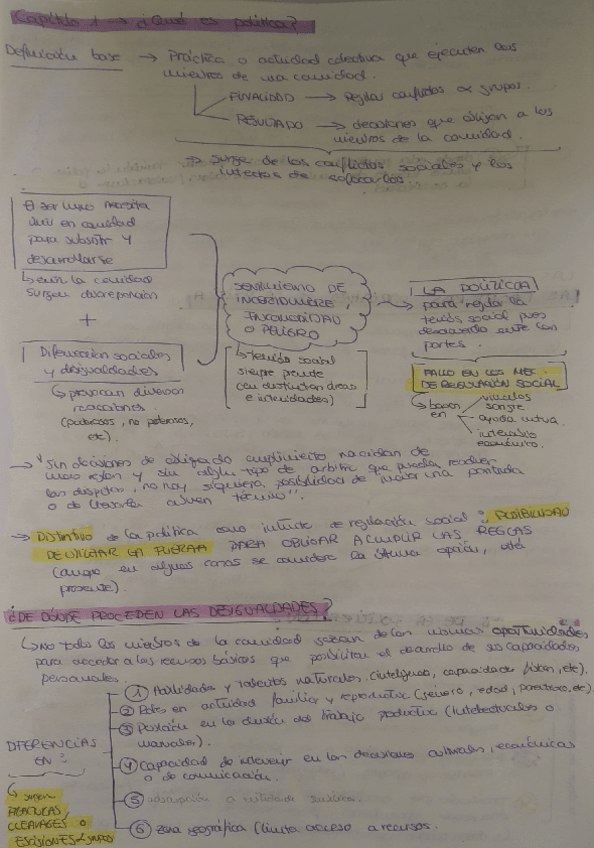 Capítulo 1 → ¿Qué es política?
Definición base → Práctica o actividad colectiva que ejecutan los
miembros de una comunidad.
FINALIDAD → Regular conflictos de grupos.
RESULTADO → decisiones que obligan a los
miembros de la comunidad.
⇒ Surge de los conflictos sociales y los
intentos de
necesita
vivir en comunidad
para subsistir y
desarrollarse
↳ en la comunidad
surgen
+
Diferencias sociales
y desigualdades
↳ provocan diversas
reacciones.
(poderosos, no poderosos,
etc).
SENTIMIENTO DE
INCERTIDUMBRE,
INCOMODIDAD
O PELIGRO
↳ tensión social
siempre presente
(en distintas áreas
e intensidades)
LA POLÍTICA
para regular la
tensión social pues
desacuerdo entre las
partes.
FALLO EN LOS MEC.
DE REGULACIÓN SOCIAL
↳ basan en
vínculos
sangre
ayuda mutua.
intercambio
económico.
→ "Sin decisiones de obligado cumplimiento
y sin algún tipo de árbitro que pueda resolver
las disputas, no hay siquiera posibilidad de iniciar una partida
o de llevarla a buen término".
→ Distintivo de la política como intento de regulación social: POSIBILIDAD
DE UTILIZAR LA FUERZA PARA OBLIGAR A CUMPLIR LAS REGLAS
(aunque en algunos casos se considere la última opción, está
presente).
¿DE DÓNDE PROCEDEN LAS DESIGUALDADES?
↳ No todos los miembros de la comunidad gozan de las mismas oportunidades
para acceder a los recursos básicos que posibilitan el desarrollo de sus capacidades
personales
DIFERENCIAS
EN:
① Habilidades y talentos naturales (inteligencia, capacidades físicas, etc).
② Roles en actividad familiar y reproductiva (género, edad, parentesco, etc)
③ Posición en la división del trabajo productivo (intelectuales o
manuales).
④ Capacidad de intervenir en las decisiones culturales, económicas
o de comunicación.
⑤
⑥ Zona geográfica (limita acceso a recursos.
↳ surgen
FRACTURAS,
CLEAVAGES o
ESCISIONES